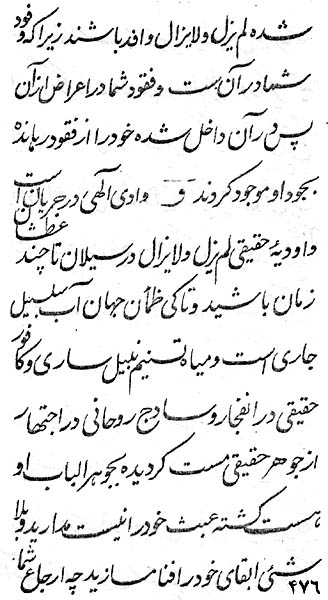 شده لم یزل ولایزال وافد باشند زیرا که وفود
شما در آن است و فقود شما در اعراض از آن
پس در آن داخل شده خود را از فقود رهانده
بجود او موجود کردند و وادی الهی در جریان است
و اودیهٔ حقیقی لم یزل ولایزال در سیلان تا چند عطشان
زمان باشید و تا کی ظمأن جهان آب سلسبیل
جاری است و میاه تسنیم نبیل ساری و کافور
حقیقی در انفجار و سادج روحانی در اجتهار
از جوهر حقیقی مست کردیده بجوهر الباب او
هست کشته عبث خود را نیست مدارید و بلا
شیٔ ابقای خود را فنا مسازید چه ارجاع شما
۴۷۶